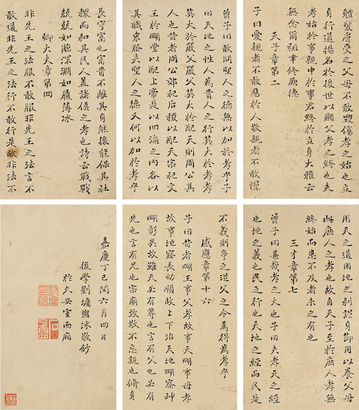 體髮膚受之父母不敢毀傷孝之始也立
身行道揚名於後世以顯父母孝之終也夫
孝始於事親中於事君終於立身大雅云
無念爾祖聿修厥德
天子章第二
子曰愛親者不敢惡於人敬親者不敢慢
曾子曰敢問聖人之德無以加於孝乎子
曰天地之性人為貴人之行莫大於孝孝
莫大於嚴父嚴父莫大於配天則周公其
人也昔者周公郊祀后稷以配天宗祀文
王於明堂以配上帝是以四海之內各以
其職來祭夫聖人之德又何以加於孝乎
長守富也富貴不離其身然後能保其社
稷而和其民人蓋諸侯之孝也詩云戰戰
兢兢如臨深淵如履薄冰
卿大夫章第四
非先王之法服不敢服非先王之法言不
敢道非先王之行不敢行是故非法不
用天之道因地之利謹身節用以養父母
此庶人之孝也故自天子至於庶人孝無
終始而患不及者未之有也
三才章第七
曾子曰甚哉孝之大也子曰夫孝天之經
也地之義也民之行也天地之經而民是
不義則爭之從父之令焉得為孝乎
感應章第十六
子曰昔者明王事父孝故事天明事母孝
故事地察長幼順故上下治天地明察神
明彰矣故雖天子必有尊也言有父也必有
先也言有兄也宗廟致敬不忘親也修身
嘉慶丁巳閏六月四日
後學劉墉盥沐敬鈔
於久安室廂